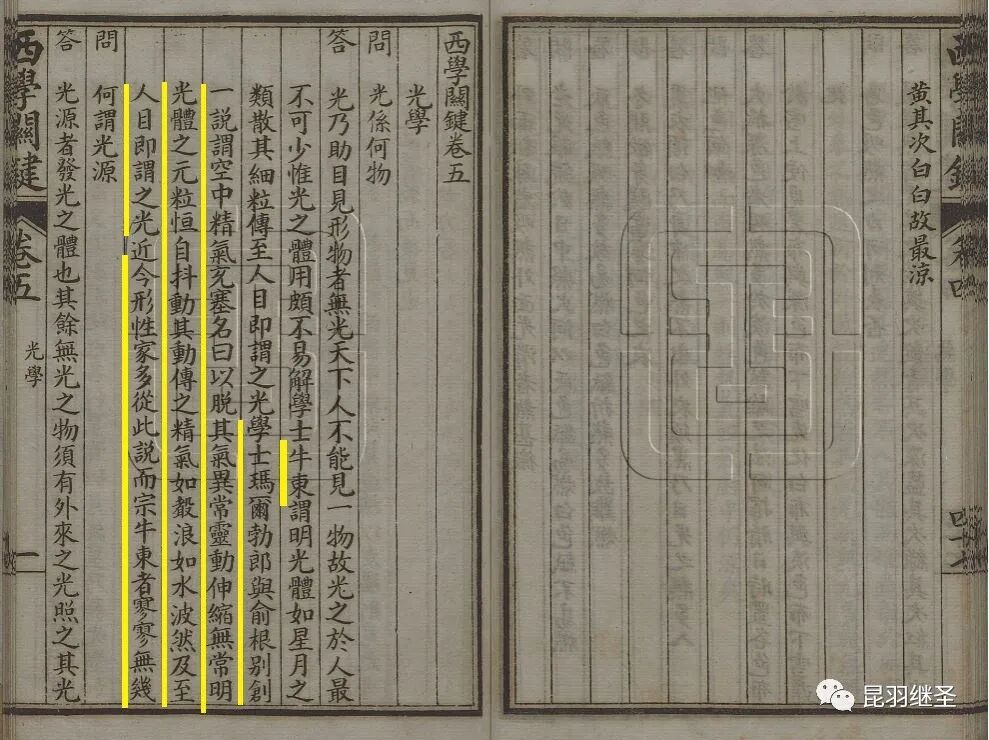 黄其次白白故最涼
西學關鍵卷五
光學
問
光係何物
答
光乃助目見形物者無光天下人不能見一物故光之於人最
不可少惟光之體用頗不易解學士牛東謂明光體如星月之
類散其細粒傳至人目即謂之光學士瑪爾勃郎與俞根别創
一説謂空中精氣充塞名曰以脱其氣異常靈動伸縮無常明
光體之元粒恒自抖動其動傳之精氣如聲浪如水波然及至
人目即謂之光近今形性家多從此説而宗牛東者寥寥無幾
問
何謂光源
答
光源者發光之體也其餘無光之物須有外來之光照之其光
西學關鍵
卷五
光學
一
昆羽继圣